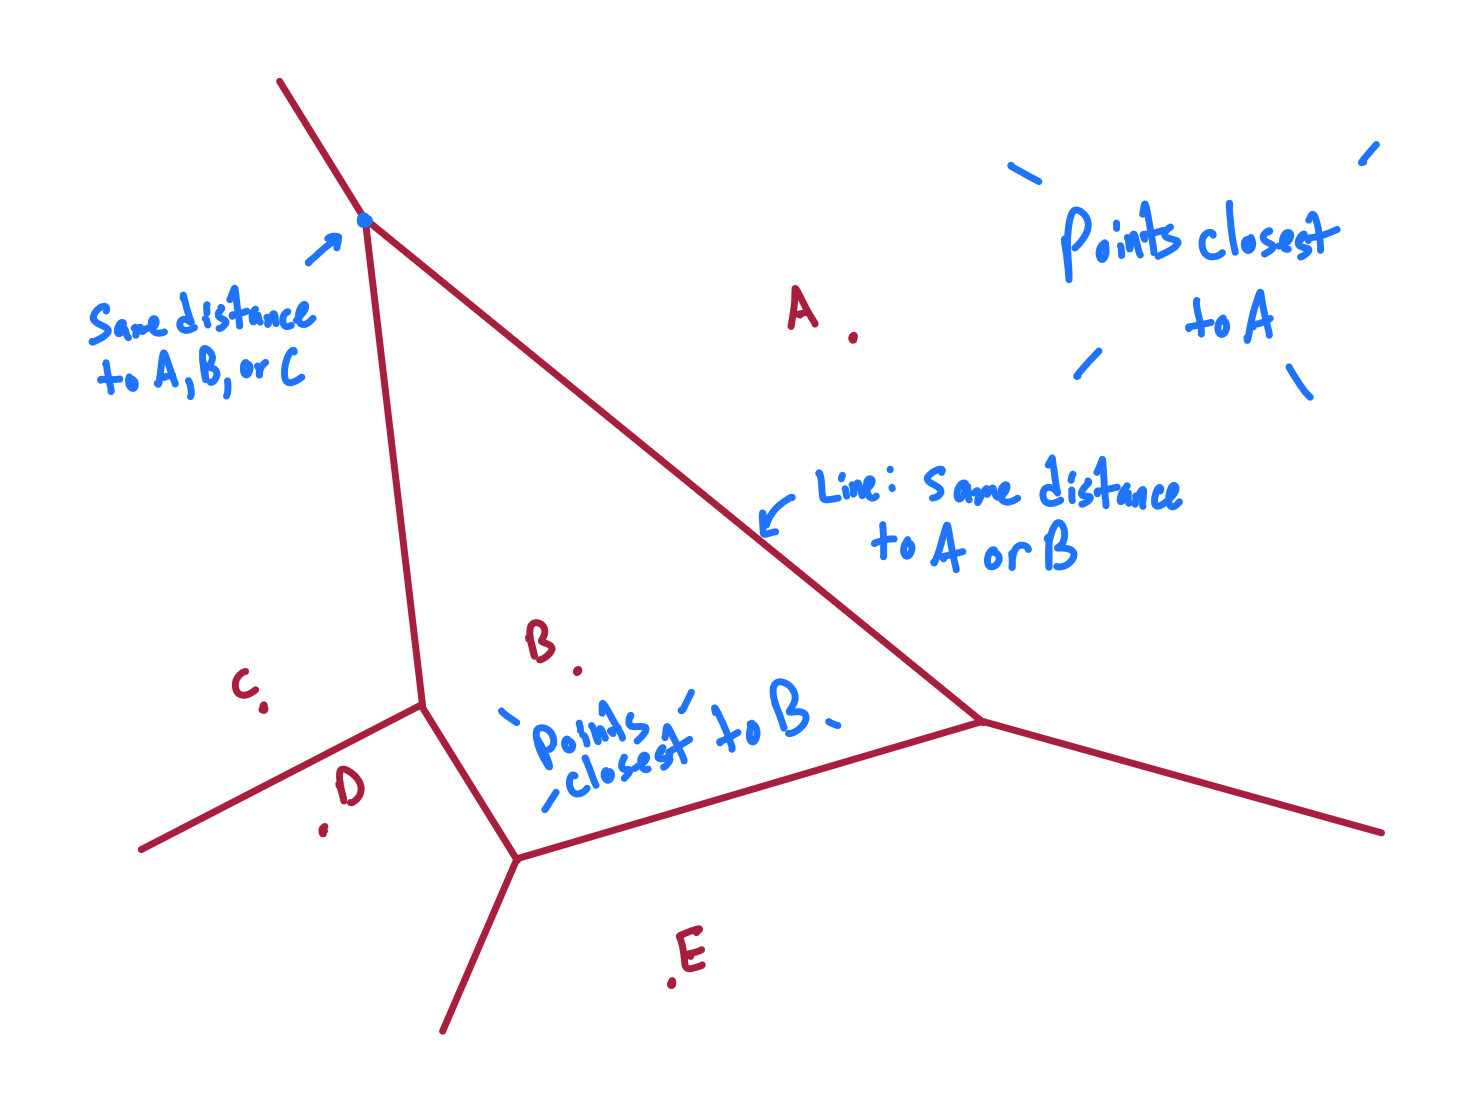 Points closest
to A
A
Same distance
to A, B, or C
Line: Same distance
to A or B
B
Points
closest to B
C
D
E